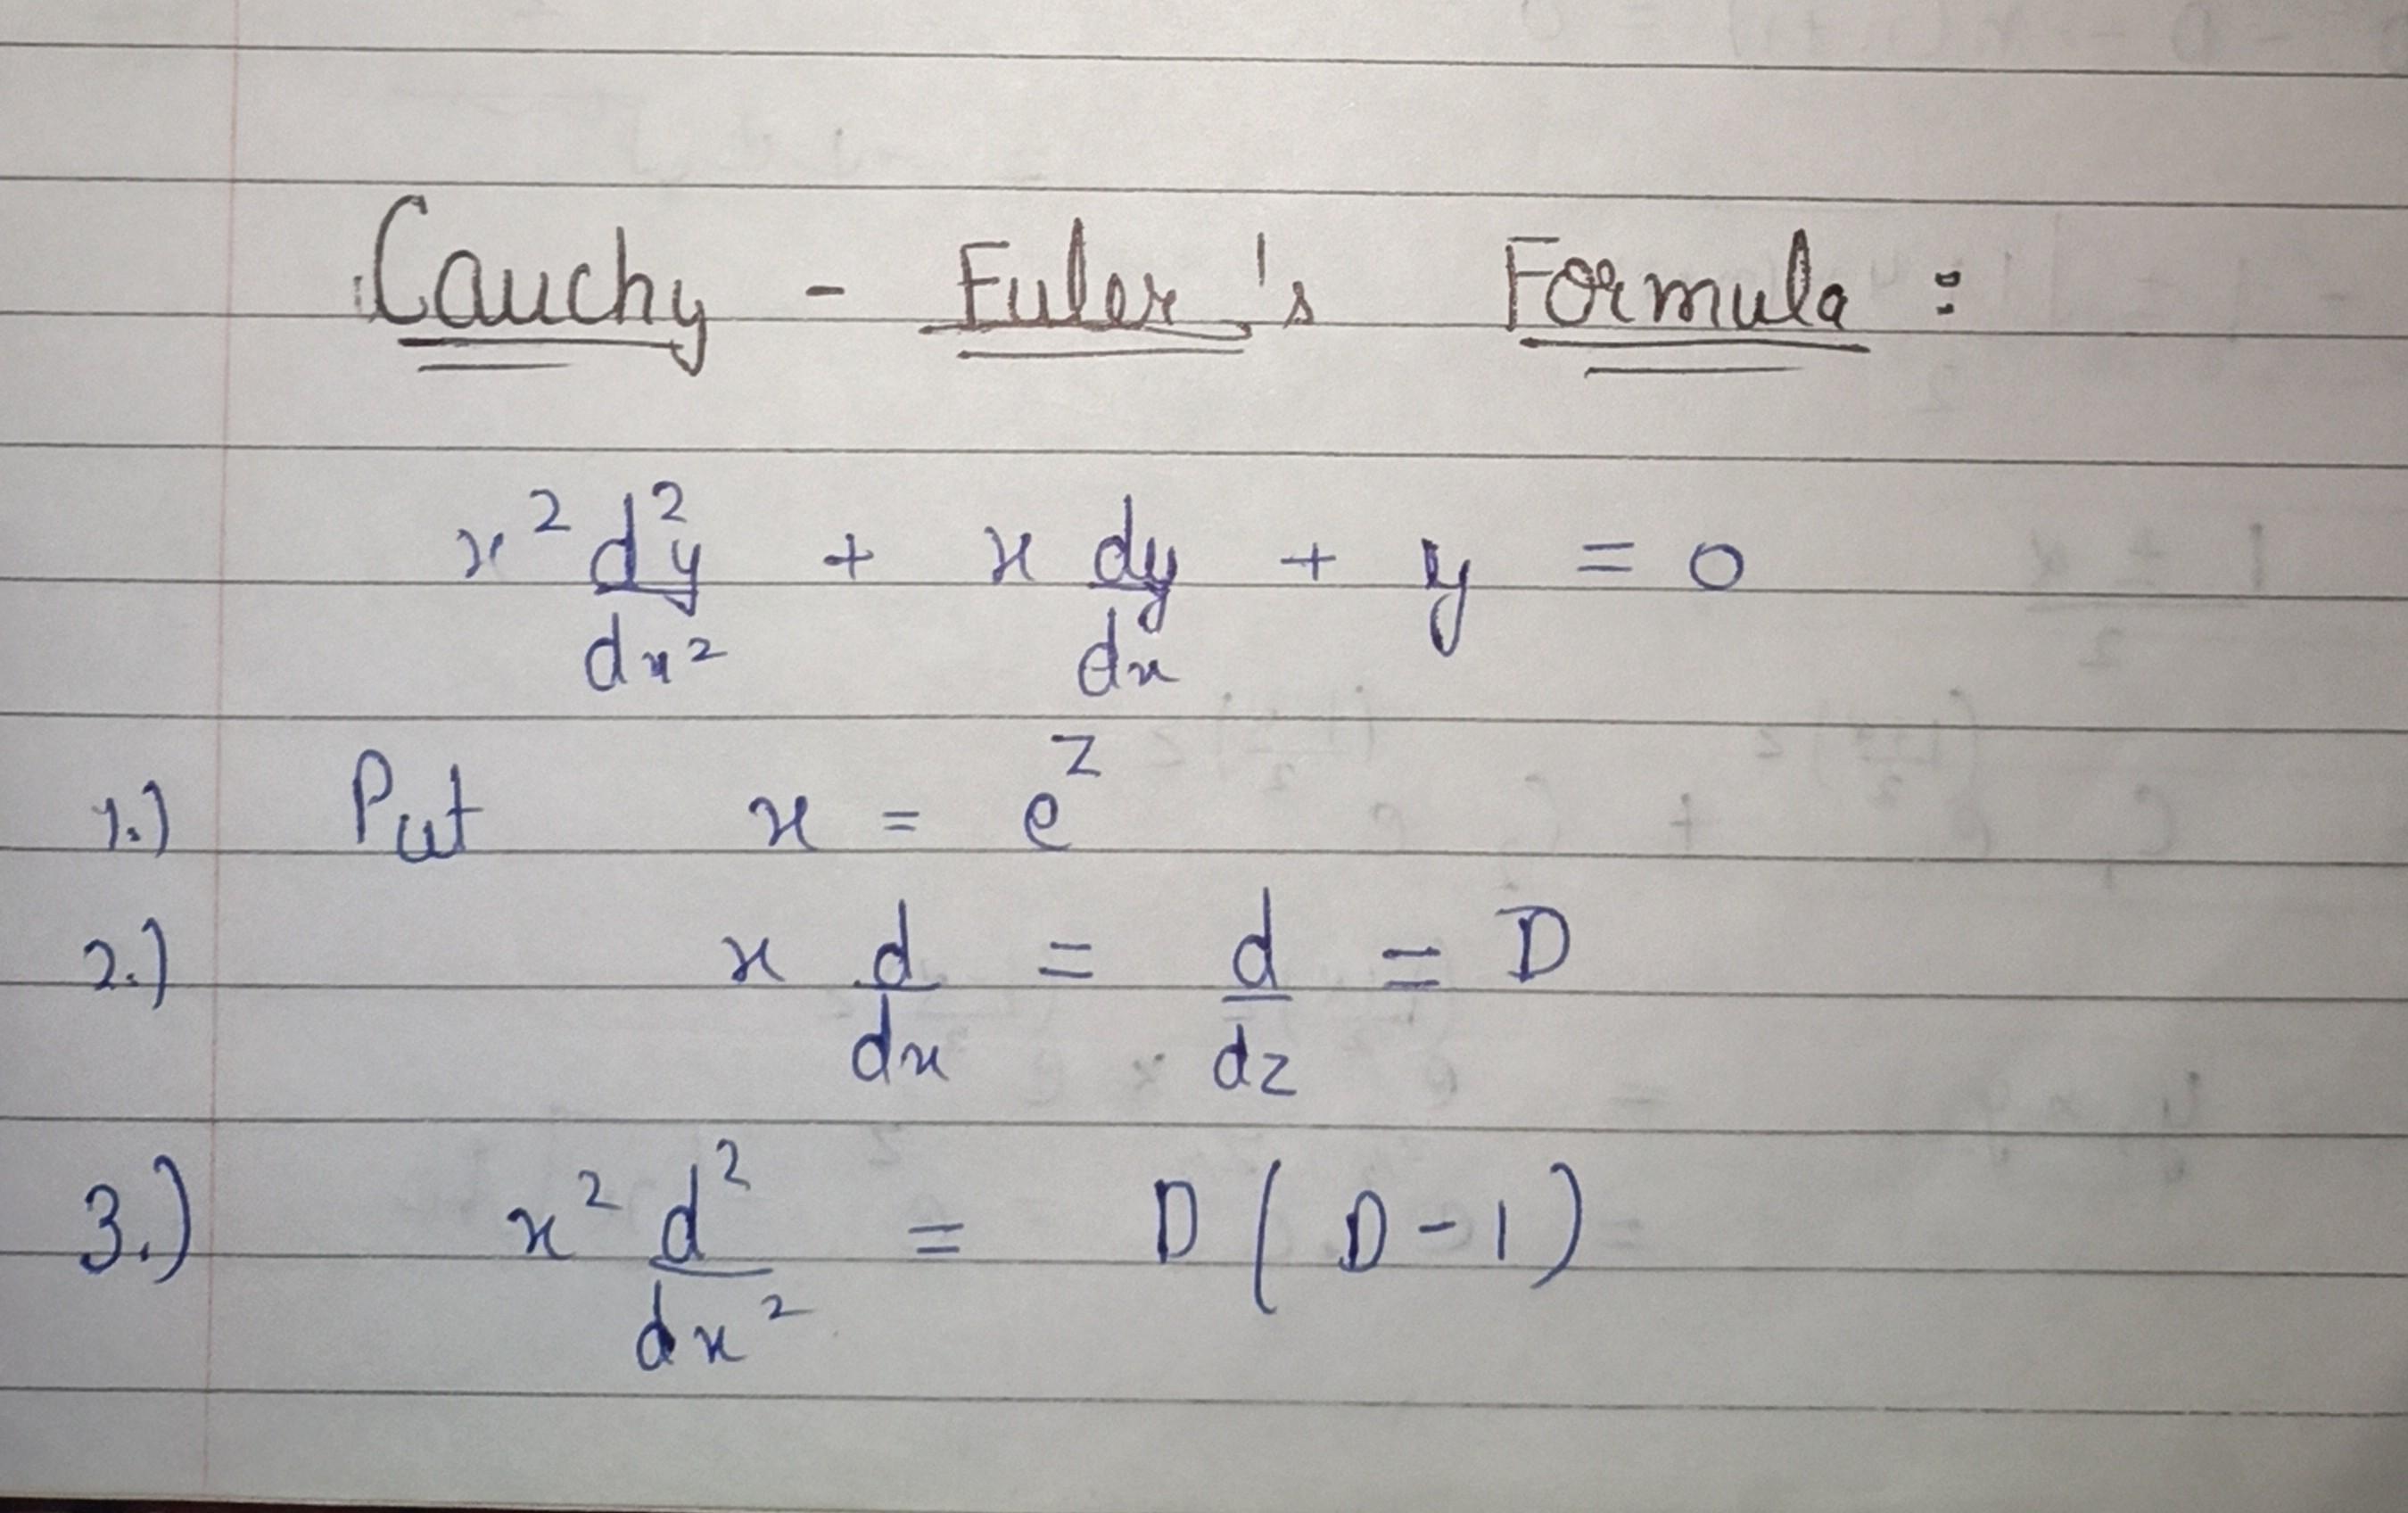 Cauchy - Euler's Formula :
x² d²y/dx² + x dy/dx + y = 0
1.) Put x = e^z
2.) x d/dx = d/dz = D
3.) x² d²/dx² = D ( D - 1 )